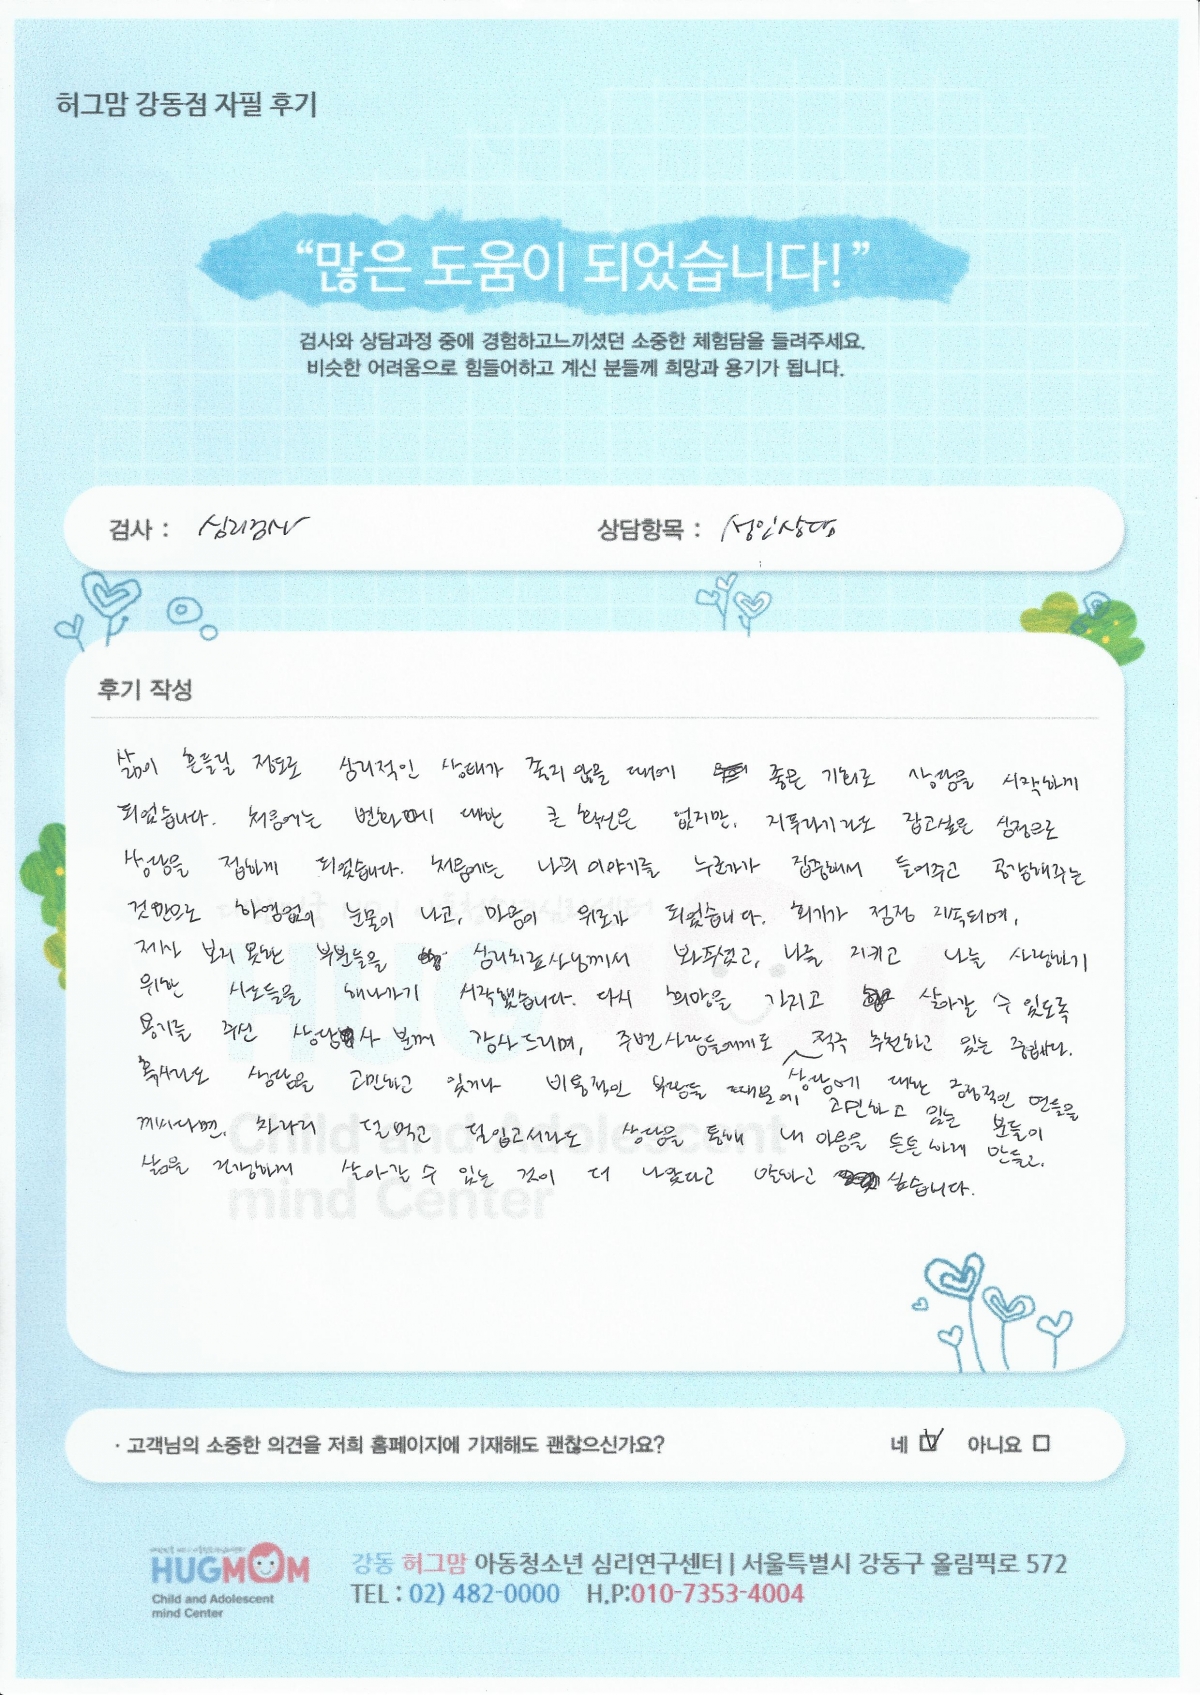 허그맘 강동점 자필 후기
“많은 도움이 되었습니다!”
검사와 상담과정 중에 경험하고느끼셨던 소중한 체험담을 들려주세요.
비슷한 어려움으로 힘들어하고 계신 분들께 희망과 용기가 됩니다.
검사 : 심리검사 상담항목 : 성인상담
후기 작성
삶이 흔들릴 정도로 심리적인 상태가 좋지 않을 때에 좋은 기회로 상담을 시작하게
되었습니다. 처음에는 변화에 대한 큰 확신은 없지만, 지푸라기라도 잡고싶은 심정으로
상담을 접하게 되었습니다. 처음에는 나의 이야기를 누군가가 집중해서 들어주고 공감해주는
것만으로 하염없이 눈물이 나고, 마음이 위로가 되었습니다. 회기가 점점 지속되며,
제가 보지 못한 부분들을 심리치료사님께서 봐주셨고, 나를 지키고 나를 사랑하기
위한 시도들을 해나가기 시작했습니다. 다시 희망을 가지고 살아갈 수 있도록
용기를 주신 상담사 분께 감사드리며, 주변사람들에게도 적극 추천하고 있는 중입니다.
혹시라도 상담을 고민하고 있거나 비용적인 부담들 때문에 상담에 대한 고민하고 있는 분들이
계시다면, 차라리 덜 먹고 덜 입고서라도 상담을 통해 내 마음을 튼튼하게 만들고,
삶을 건강하게 살아갈 수 있는 것이 더 나았다고 말하고 싶습니다.
· 고객님의 소중한 의견을 저희 홈페이지에 기재해도 괜찮으신가요? 네 아니요
HUGMOM
Child and Adolescent
mind Center
강동 허그맘 아동청소년 심리연구센터 | 서울특별시 강동구 올림픽로 572
TEL : 02) 482-0000 H.P:010-7353-4004